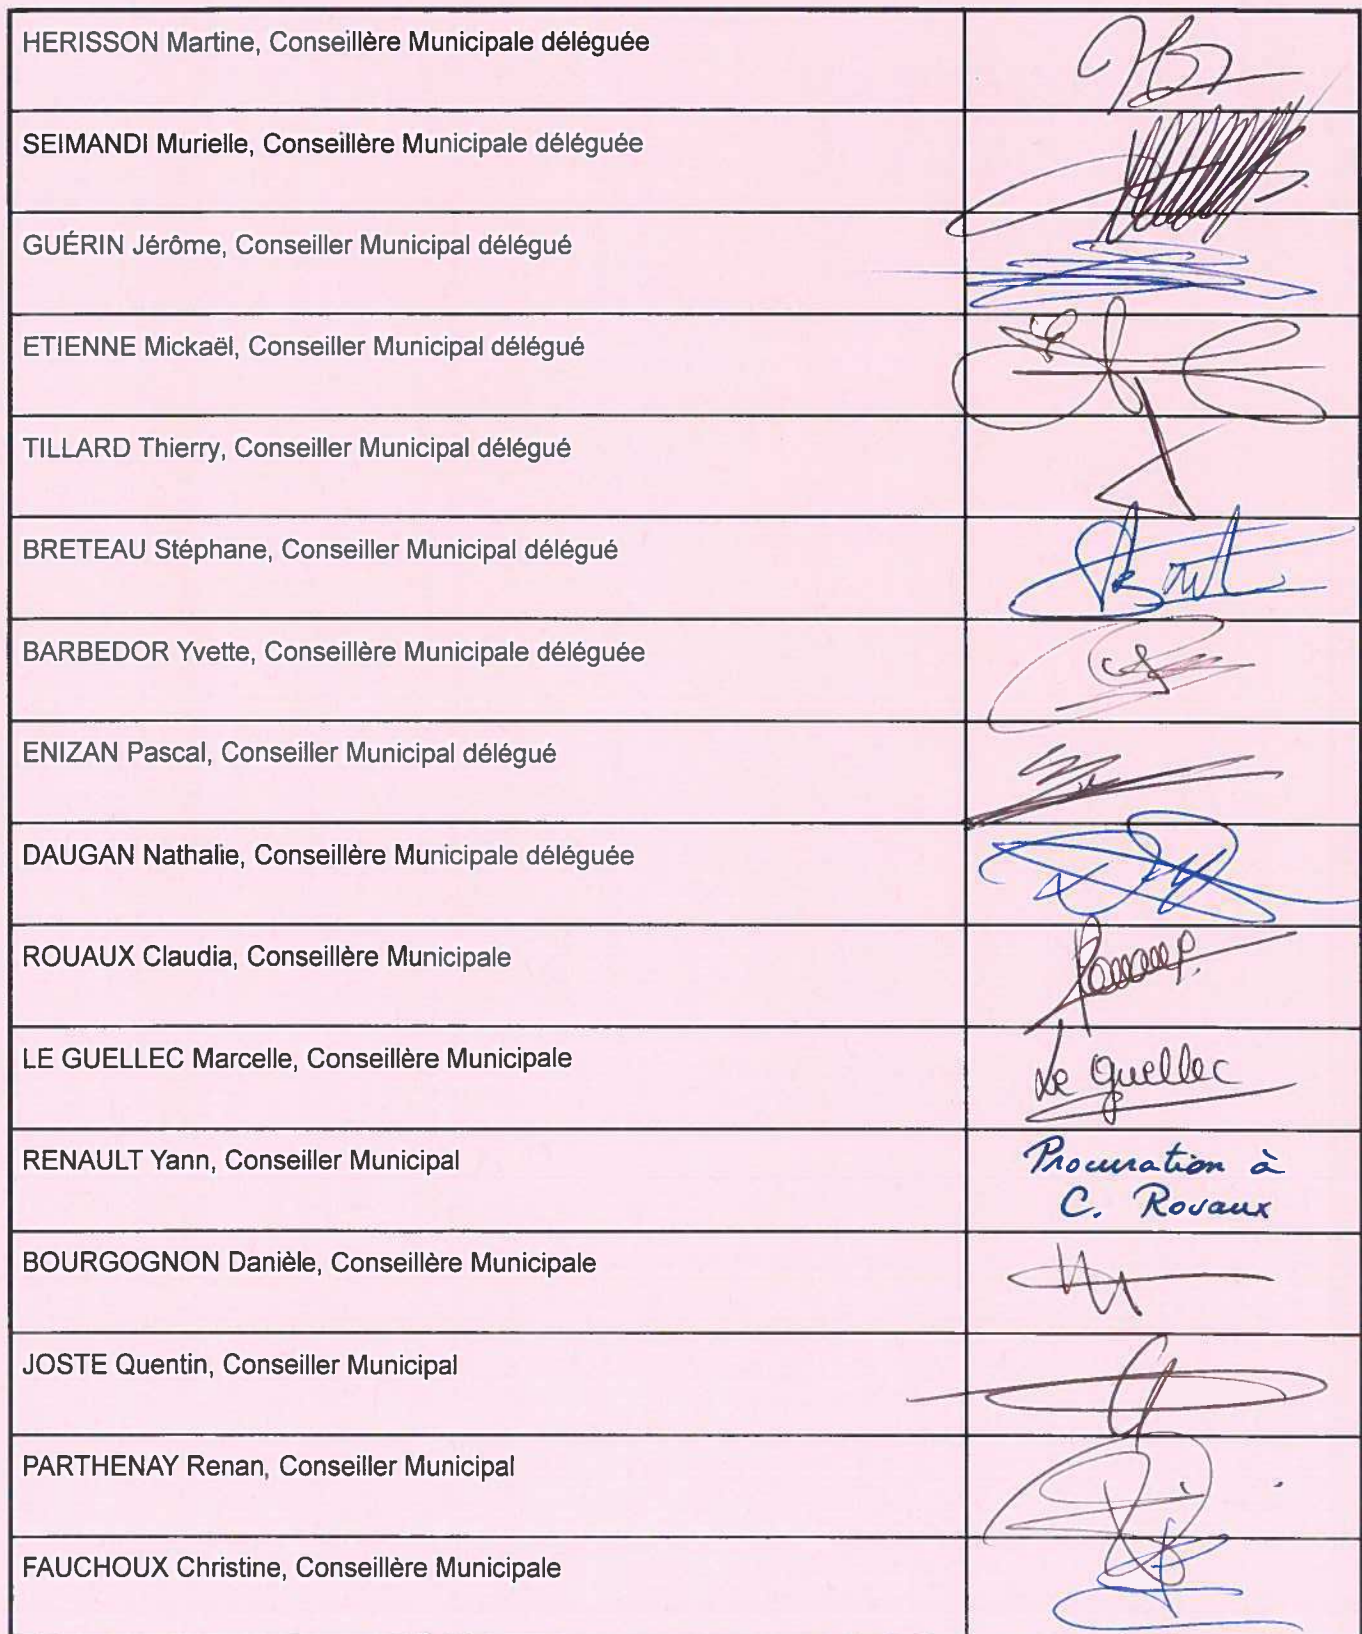 HERISSON Martine, Conseillère Municipale déléguée
SEIMANDI Murielle, Conseillère Municipale déléguée
GUÉRIN Jérôme, Conseiller Municipal délégué
ETIENNE Mickaël, Conseiller Municipal délégué
TILLARD Thierry, Conseiller Municipal délégué
BRETEAU Stéphane, Conseiller Municipal délégué
BARBEDOR Yvette, Conseillère Municipale déléguée
ENIZAN Pascal, Conseiller Municipal délégué
DAUGAN Nathalie, Conseillère Municipale déléguée
ROUAUX Claudia, Conseillère Municipale
LE GUELLEC Marcelle, Conseillère Municipale
Le Guellec
RENAULT Yann, Conseiller Municipal
Procuration à
C. Rouaux
BOURGOGNON Danièle, Conseillère Municipale
JOSTE Quentin, Conseiller Municipal
PARTHENAY Renan, Conseiller Municipal
FAUCHOUX Christine, Conseillère Municipale